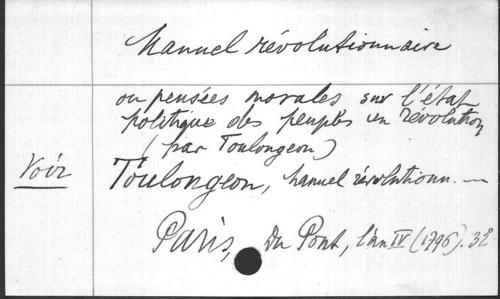 Manuel révolutionnaire
ou pensées morales sur l'état
politique des peuples en révolution
(par Toulongeon)
Voir Toulongeon, Manuel révolutionn. —
Paris, Du Pont, l'an IV (1796). 32